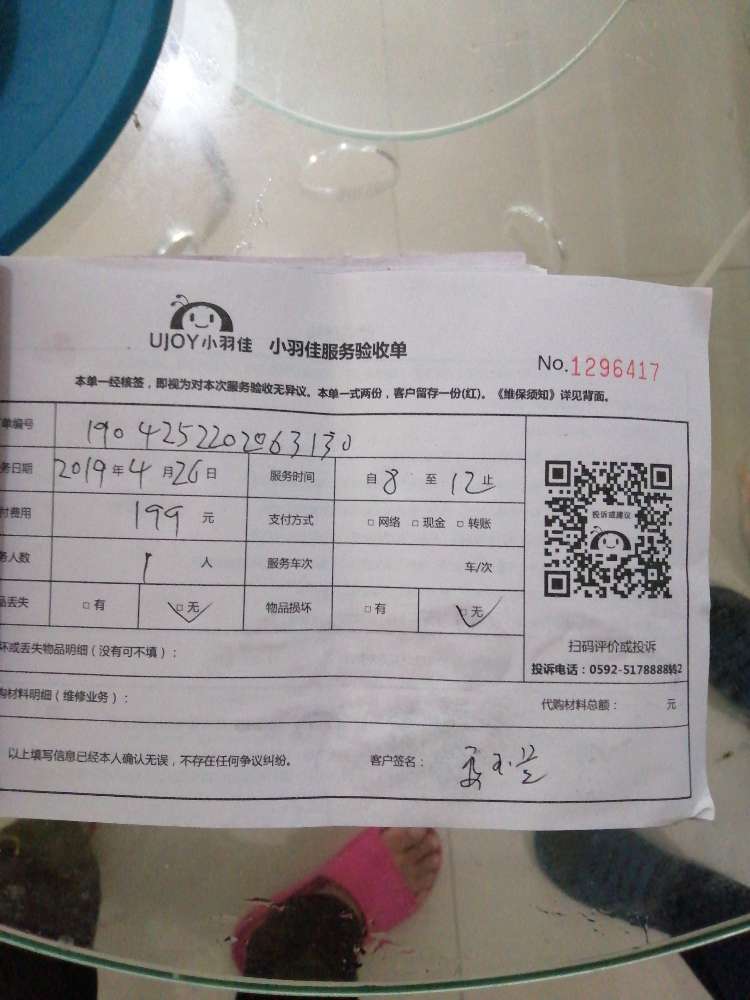 UJOY小羽佳 小羽佳服务验收单
No.1296417
本单一经核签，即视为对本次服务验收无异议。本单一式两份，客户留存一份(红)。《维保须知》详见背面。
单编号 1904252202063130
务日期 2019年4月26日 服务时间 自8至12止
付费用 199元 支付方式 □网络 □现金 □转账
务人数 1人 服务车次 车/次
品丢失 □有 □无 物品损坏 □有 □无
投诉或建议
扫码评价或投诉
投诉电话：0592-5178888转2
坏或丢失物品明细（没有可不填）：
购材料明细（维修业务）： 代购材料总额： 元
以上填写信息已经本人确认无误，不存在任何争议纠纷。 客户签名：